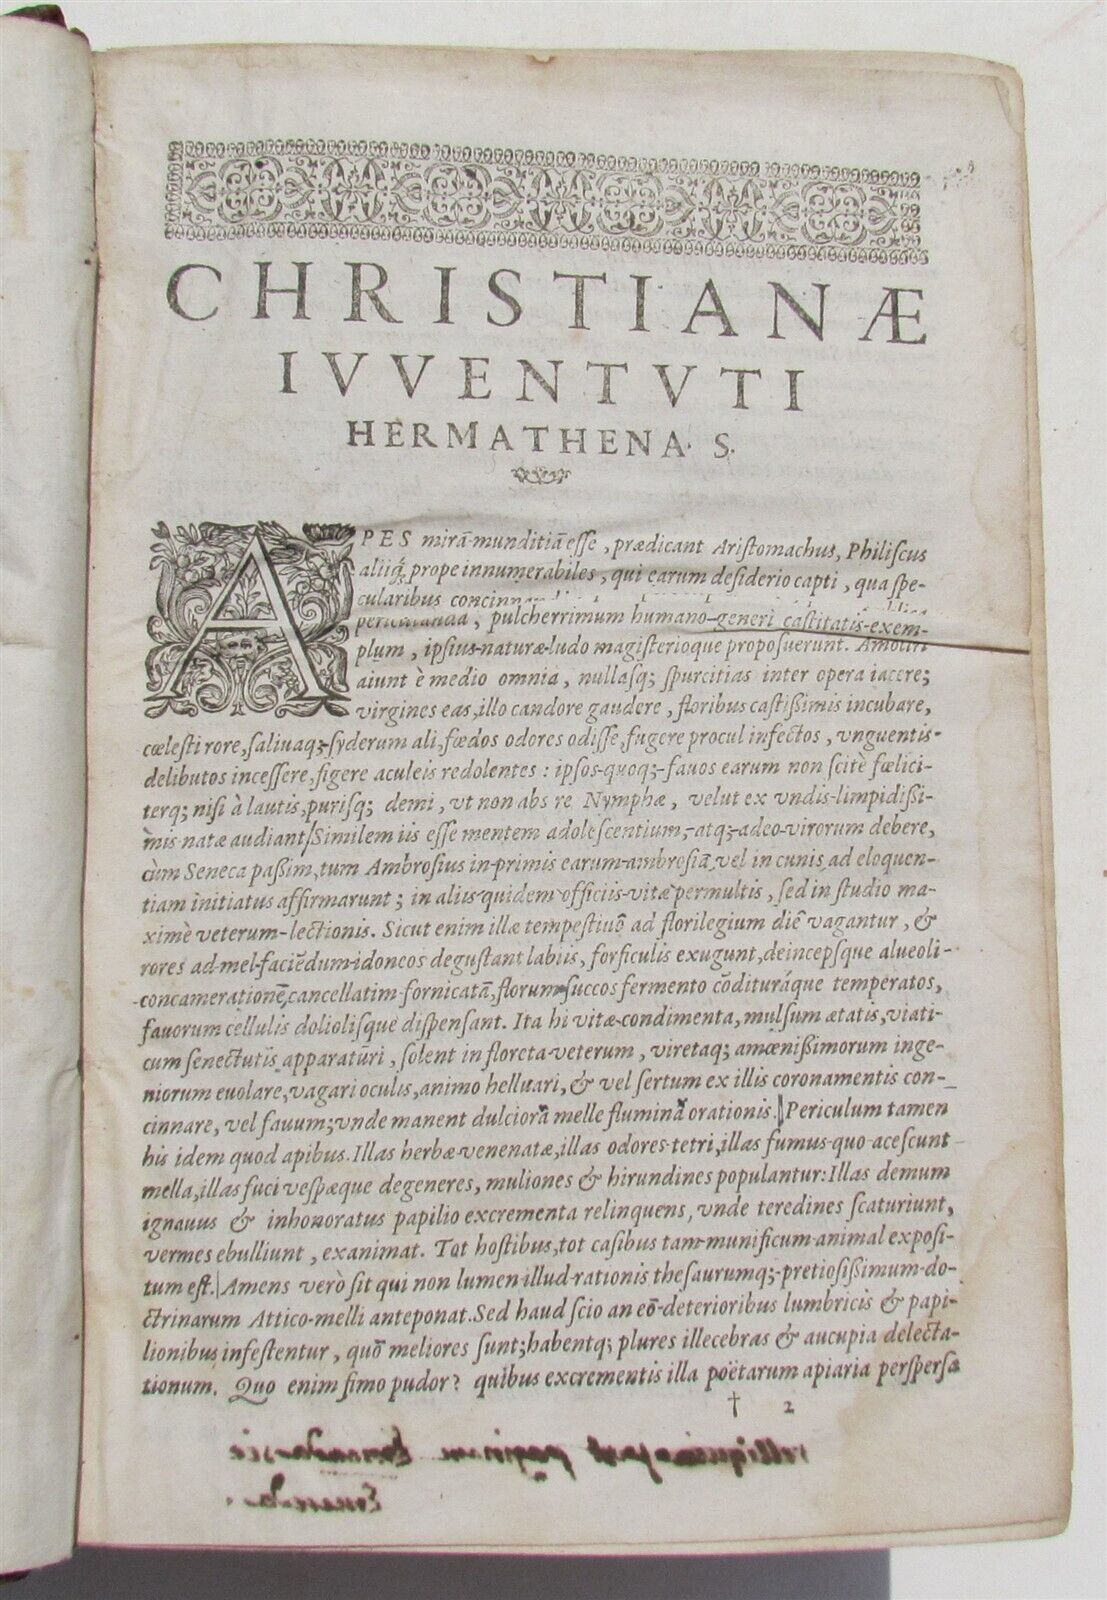 CHRISTIANÆ
IVVENTVTI
HERMATHENA. S.
APES mirā munditiā esse, prædicant Aristomachus, Philiscus
aliiq́; prope innumerabiles, qui earum desiderio capti, qua spe-
cularibus
pulcherrimum humano generi castitatis exem-
plum, ipsius naturæ ludo magisterioque proposuerunt. Amoliri
aiunt è medio omnia, nullasq; spurcitias inter opera iacere;
virgines eas, illo candore gaudere, floribus castißimis incubare,
cœlesti rore, salivaq; syderum ali, fœdos odores odisse, fugere procul infectos, vnguentis
delibutos incessere, figere aculeis redolentes: ipsos quoq; favos earum non scitè fœlici-
terq; nisi à lautis, purisq; demi, vt non abs re Nymphæ, velut ex vndis limpidißi-
mis natæ audiant. Similem iis esse mentem adolescentium, atq; adeo virorum debere,
cùm Seneca paßim, tum Ambrosius in primis earum ambrosiā, vel in cunis, ad eloquen-
tiam initiatus affirmarunt; in aliis quidem officiis vitæ permultis, sed in studio ma-
ximè veterum lectionis. Sicut enim illæ tempestivō ad florilegium diē vagantur, &
rores ad mel faciēdum idoneos degustant labiis, forficulis exugunt, deincepsque alveoli
concamerationē, cancellatim fornicatā, florum succos fermento cōdituráque temperatos,
favorum cellulis doliolisque dispensant. Ita hi vitæ condimenta, mulsum ætatis, viati-
cum senectutis apparaturi, solent in floreta veterum, viretaq; amœnißimorum inge-
niorum evolare, vagari oculis, animo helluari, & vel sertum ex illis coronamentis con-
cinnare, vel favum; vnde manent dulciora melle flumina orationis. Periculum tamen
his idem quod apibus. Illas herbæ venenatæ, illas odores tetri, illas fumus quo acescunt
mella, illas fuci vespæque degeneres, muliones & hirundines populantur: Illas demum
ignavus & inhonoratus papilio excrementa relinquens, vnde teredines scaturiunt,
vermes ebulliunt, exanimat. Tot hostibus, tot casibus tam munificum animal exposi-
tum est. Amens verò sit qui non lumen illud rationis thesaurumq; pretiosißimum do-
ctrinarum Attico melli anteponat. Sed haud scio an eō deterioribus lumbricis & papi-
lionibus infestentur, quō meliores sunt; habentq; plures illecebras & aucupia delecta-
tionum. Quo enim fimo pudor? quibus excrementis illa poëtarum apiaria perspersa
† 2